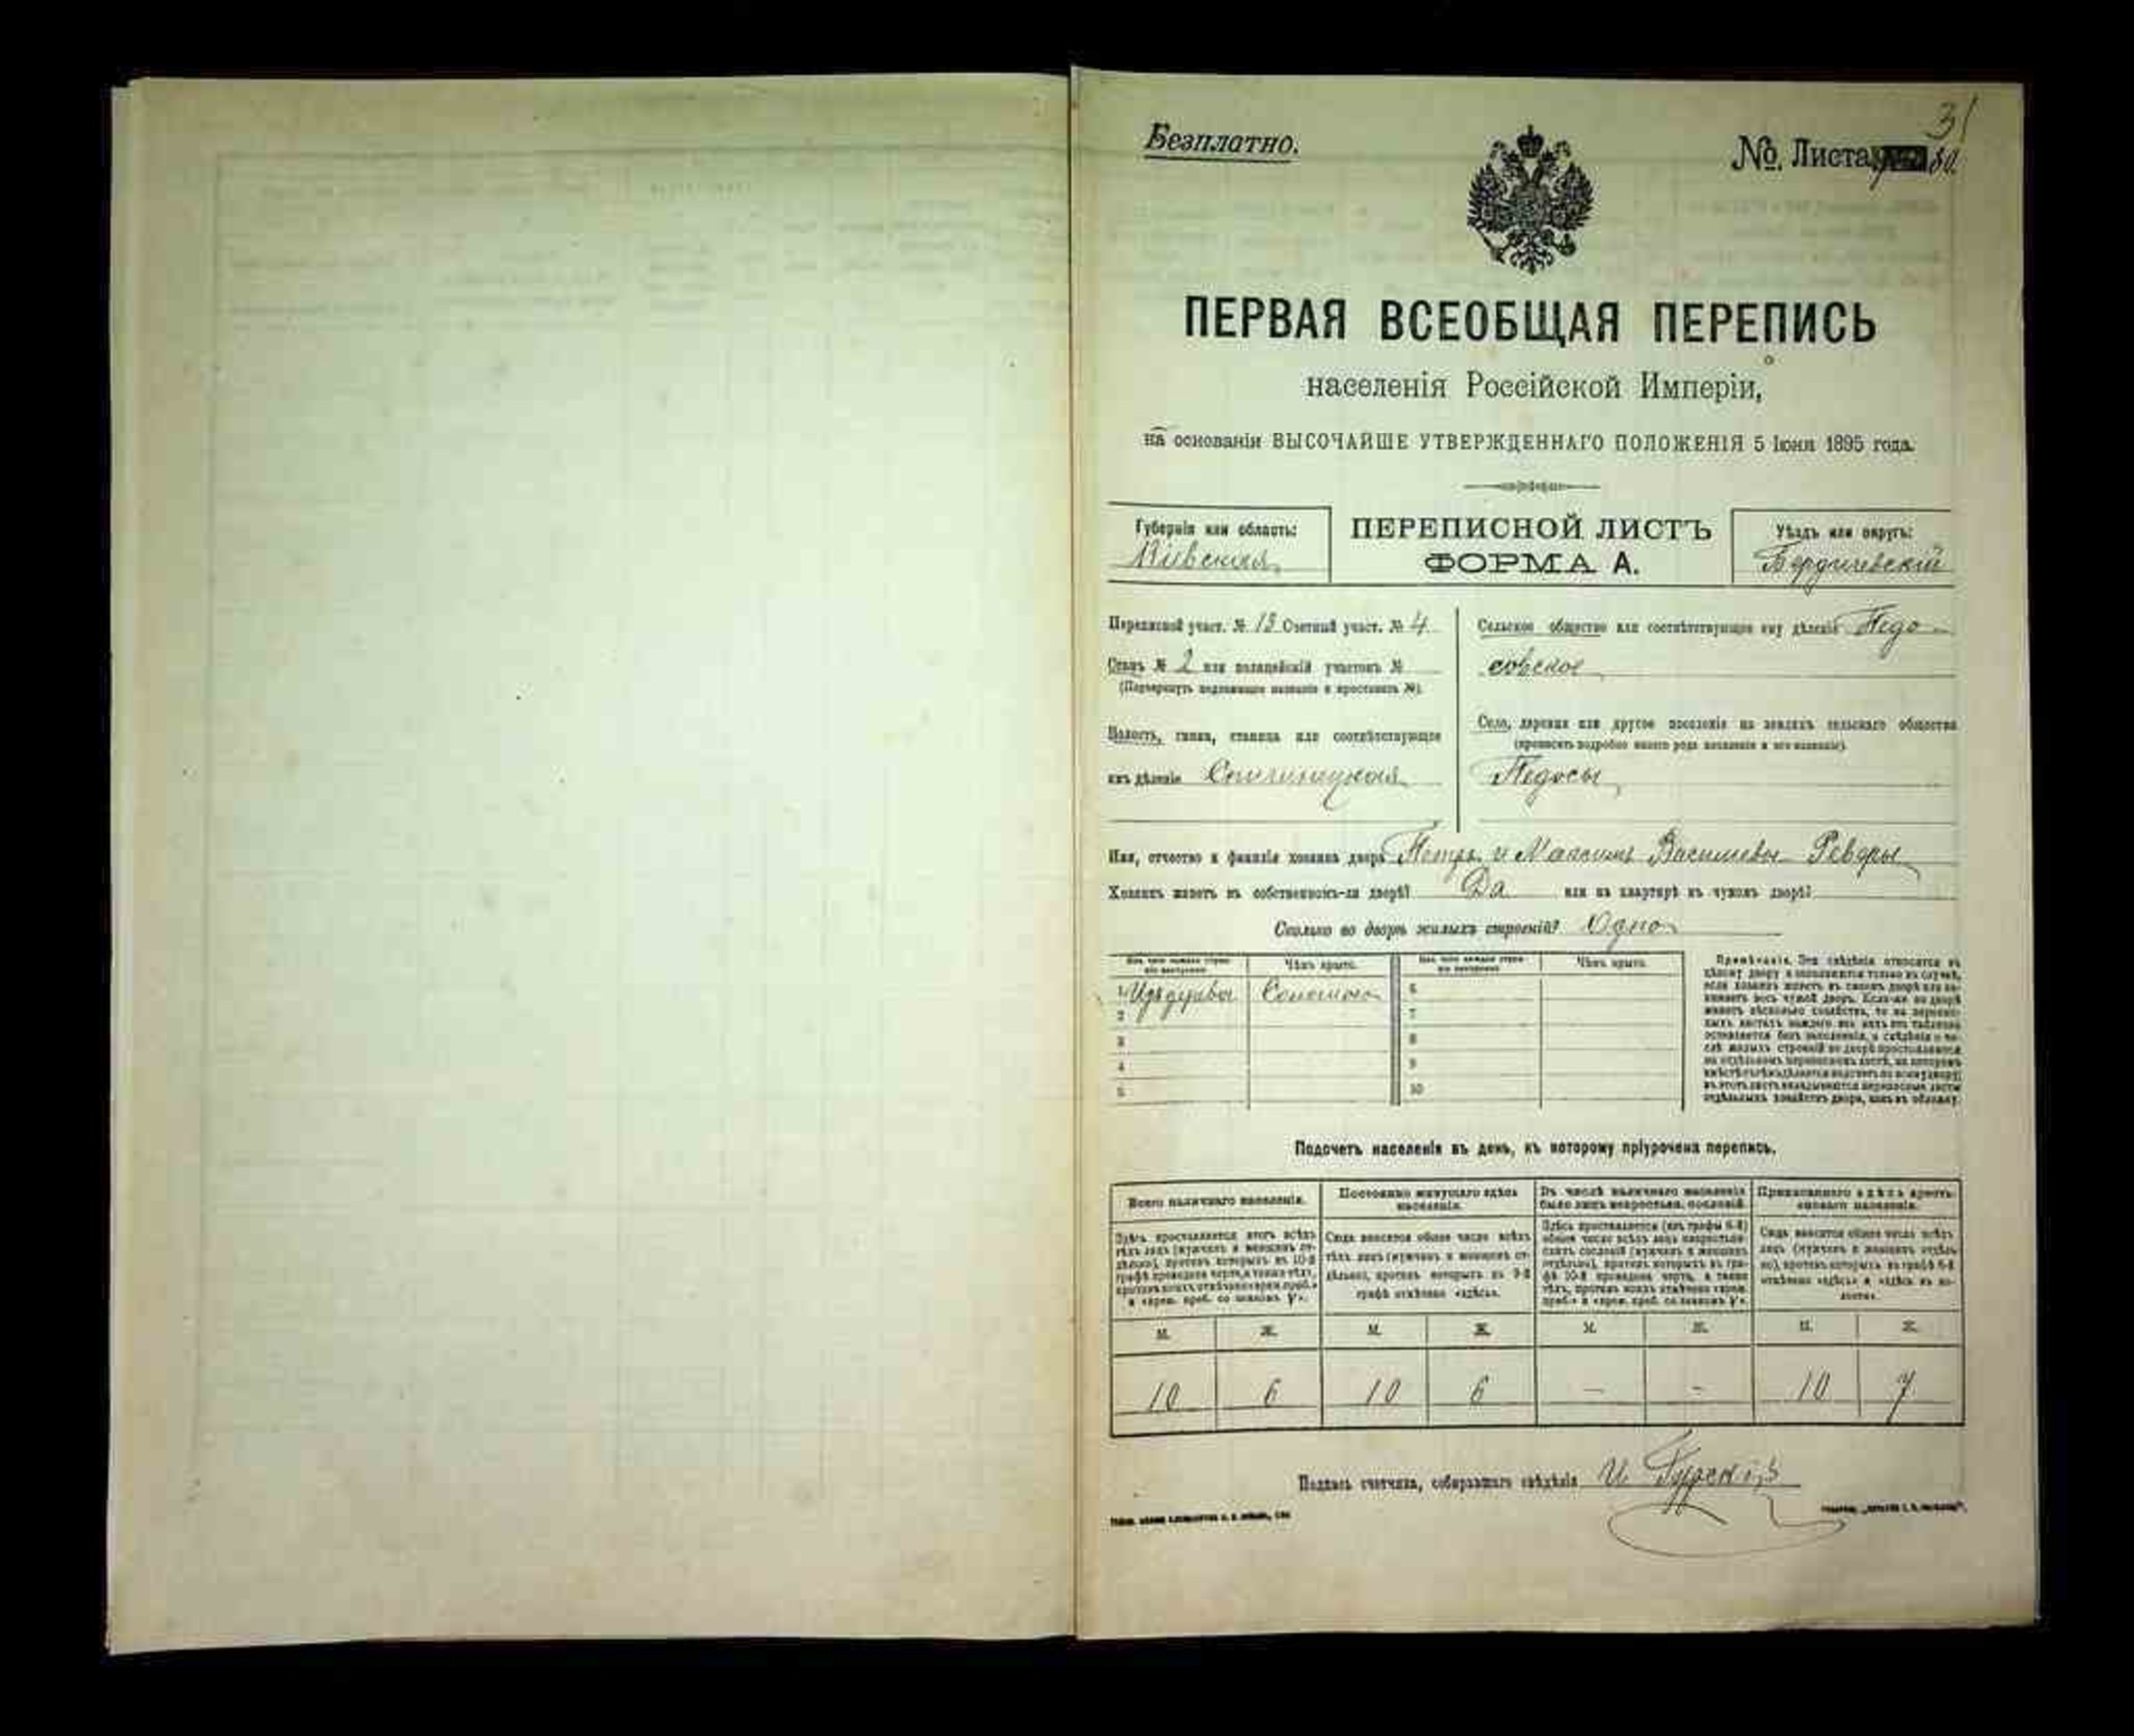 31
Безплатно.
№ Листа 30.
ПЕРВАЯ ВСЕОБЩАЯ ПЕРЕПИСЬ
населенія Россійской Имперіи,
на основаніи ВЫСОЧАЙШЕ УТВЕРЖДЕННАГО ПОЛОЖЕНІЯ 5 Іюня 1895 года.
Губернія или область:
Кіевская
ПЕРЕПИСНОЙ ЛИСТЪ
ФОРМА А.
Уѣздъ или округъ:
Бердичевскій
Переписной участ. № 13 Счетный участ. № 4
Станъ № 2 или полицейскій участокъ №
(Подчеркнуть надлежащее названіе и проставить №).
Волость, гмина, станица или соотвѣтствующее
имъ дѣленіе
Сельское общество или соотвѣтствующее ему дѣленіе Педо-
совское
Село, деревня или другое поселеніе на земляхъ сельскаго общества
(прописать подробно какого рода поселеніе и его названіе).
Педосы
Имя, отчество и фамилія хозяина двора Петръ и Максимъ Васильевы Реворы
Хозяинъ живетъ въ собственномъ-ли дворѣ? Да или на квартирѣ въ чужомъ дворѣ?
Сколько во дворѣ жилыхъ строеній? Одно
Изъ чего каждое строеніе выстроено
Чѣмъ крыто.
Изъ чего каждое строеніе выстроено
Чѣмъ крыто.
1 Изъ дерева Соломою
2
3
4
5
6
7
8
9
10
Примѣчаніе. Эти свѣдѣнія относятся къ
цѣлому двору и заполняются только въ случаѣ,
если хозяинъ живетъ въ своемъ дворѣ или за-
нимаетъ весь чужой дворъ. Если-же во дворѣ
живетъ нѣсколько хозяйствъ, то на перепис-
ныхъ листахъ каждаго изъ нихъ эта табличка
оставляется безъ заполненія, а свѣдѣнія о чи-
слѣ жилыхъ строеній во дворѣ проставляются
на отдѣльномъ переписномъ листѣ, на которомъ
вмѣстѣ съ тѣмъ дѣлается подсчетъ по всему двору;
въ этотъ листъ вкладываются переписные листы
отдѣльныхъ хозяйствъ двора, какъ въ обложку.
Подсчетъ населенія въ день, къ которому пріурочена перепись.
Всего наличнаго населенія.
Здѣсь проставляется итогъ всѣхъ
тѣхъ лицъ (мужчинъ и женщинъ от-
дѣльно), противъ которыхъ въ 10-й
графѣ проведена черта, а также тѣхъ,
противъ коихъ отмѣчено «врем. преб.»
и «врем. преб. со знакомъ V».
Постоянно живущаго здѣсь
населенія.
Сюда вносится общее число всѣхъ
тѣхъ лицъ (мужчинъ и женщинъ от-
дѣльно), противъ которыхъ въ 9-й
графѣ отмѣчено «здѣсь».
Въ числѣ наличнаго населенія
было лицъ некрестьян. сословій.
Здѣсь проставляется (изъ графы 6-й)
общее число всѣхъ лицъ некрестьян-
скихъ сословій (мужчинъ и женщинъ
отдѣльно), противъ которыхъ въ гра-
фѣ 10-й проведена черта, а также
тѣхъ, противъ коихъ отмѣчено «врем.
преб.» и «врем. преб. со знакомъ V».
Приписаннаго здѣсь кресть-
янскаго населенія.
Сюда вносится общее число всѣхъ
лицъ (мужчинъ и женщинъ отдѣль-
но), противъ которыхъ въ графѣ 8-й
отмѣчено «здѣсь» и «здѣсь въ во-
лости».
М. Ж. М. Ж. М. Ж. М. Ж.
10 6 10 6 — — 10 7
Подпись счетчика, собиравшаго свѣдѣнія И Гурскій